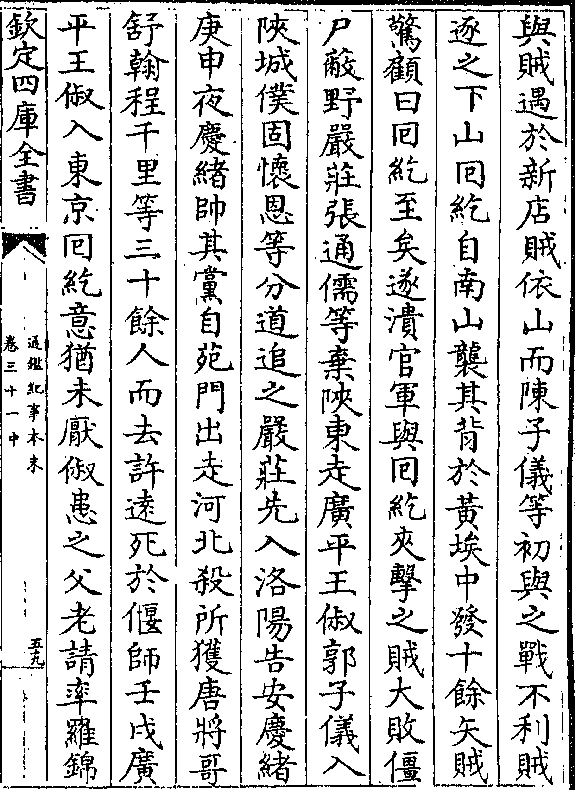 與賊遇於新店賊依山而陳子儀等初與之戰不利賊
逐之下山回紇自南山襲其背於黃埃中發十餘矢賊
驚顧曰回紇至矣遂潰官軍與回紇夾擊之賊大敗僵
尸蔽野嚴莊張通儒等棄陜東走廣平王俶郭子儀入
陜城僕固懷恩等分道追之嚴莊先入洛陽告安慶緒
庚申夜慶緒帥其黨自苑門出走河北殺所獲唐將哥
舒翰程千里等三十餘人而去許遠死於偃師壬戌廣
平王俶入東京回紇意猶未厭俶患之父老請率羅錦
欽定四庫全書
通鑑紀事本末
卷三十一中
五九